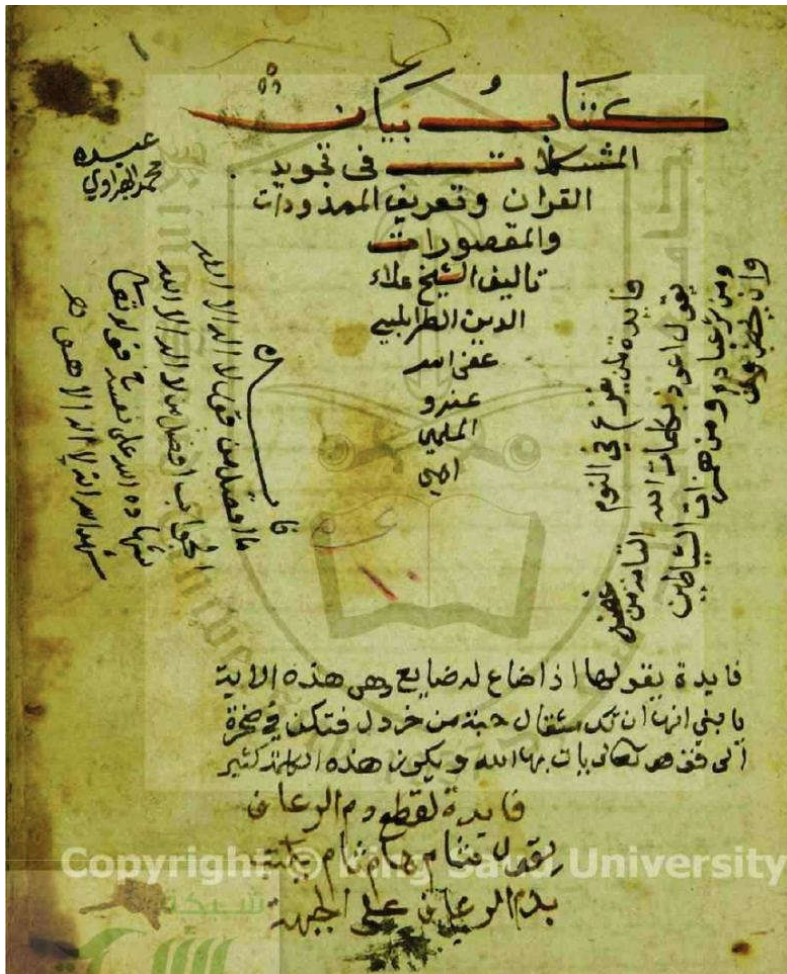 كتاب بيان
المشكلات في تجويد
القران وتعريف الممدودات
والمقصورات
تاليف الشيخ علاء
الدين الطرابلسي
عفى الله
عنه و
المسلمين
امين
عبده
محمد البحراوي
فايدة
ما افضل من قول لا اله الا الله
الجواب افضل من لا اله الا الله
شهادة الله على نفسه في قوله تعالى
شهد الله انه لا اله الا هو
فايدة لمن يفزع في النوم
يقول اعوذ بكلمات الله التامة من غضبه
ومن شر عباده ومن همزات الشياطين
وان يحضرون
فايدة يقولها اذا ضاع له ضايع وهي هذه الاية
يا بني انها ان تك مثقال حبة من خردل فتكن في صخرة
بات بها الله ويكون هذه الكلمة كثير
فايدة لقطع دم الرعاف
يقول
بدم الرعاف على الجبهة
Copyright © King Saud University
شبكة